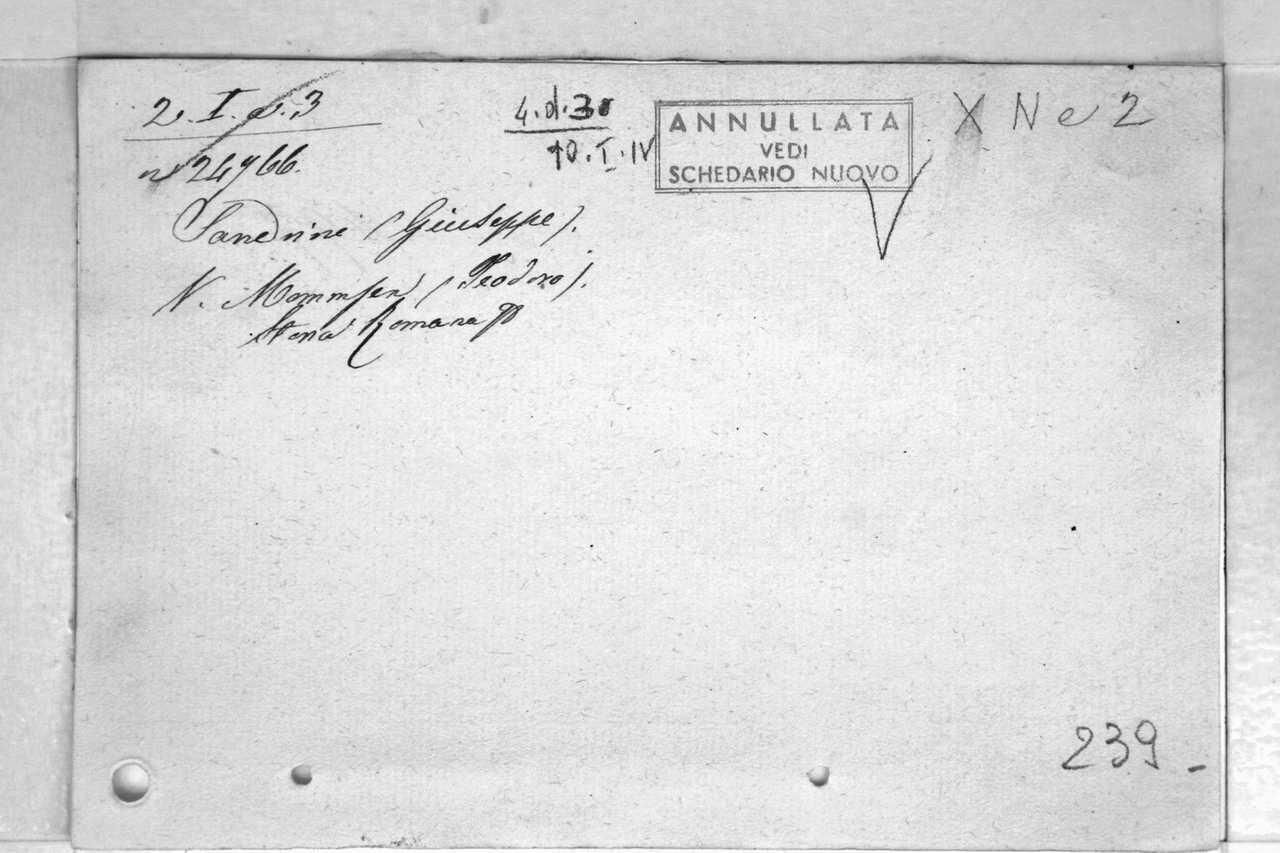 2. I. e. 3
n 24766.
Sandrini (Giuseppe).
V. Mommsen (Teodoro).
Storia Romana
4.d.30
10.I.IV
ANNULLATA
VEDI
SCHEDARIO NUOVO
X N e 2
239